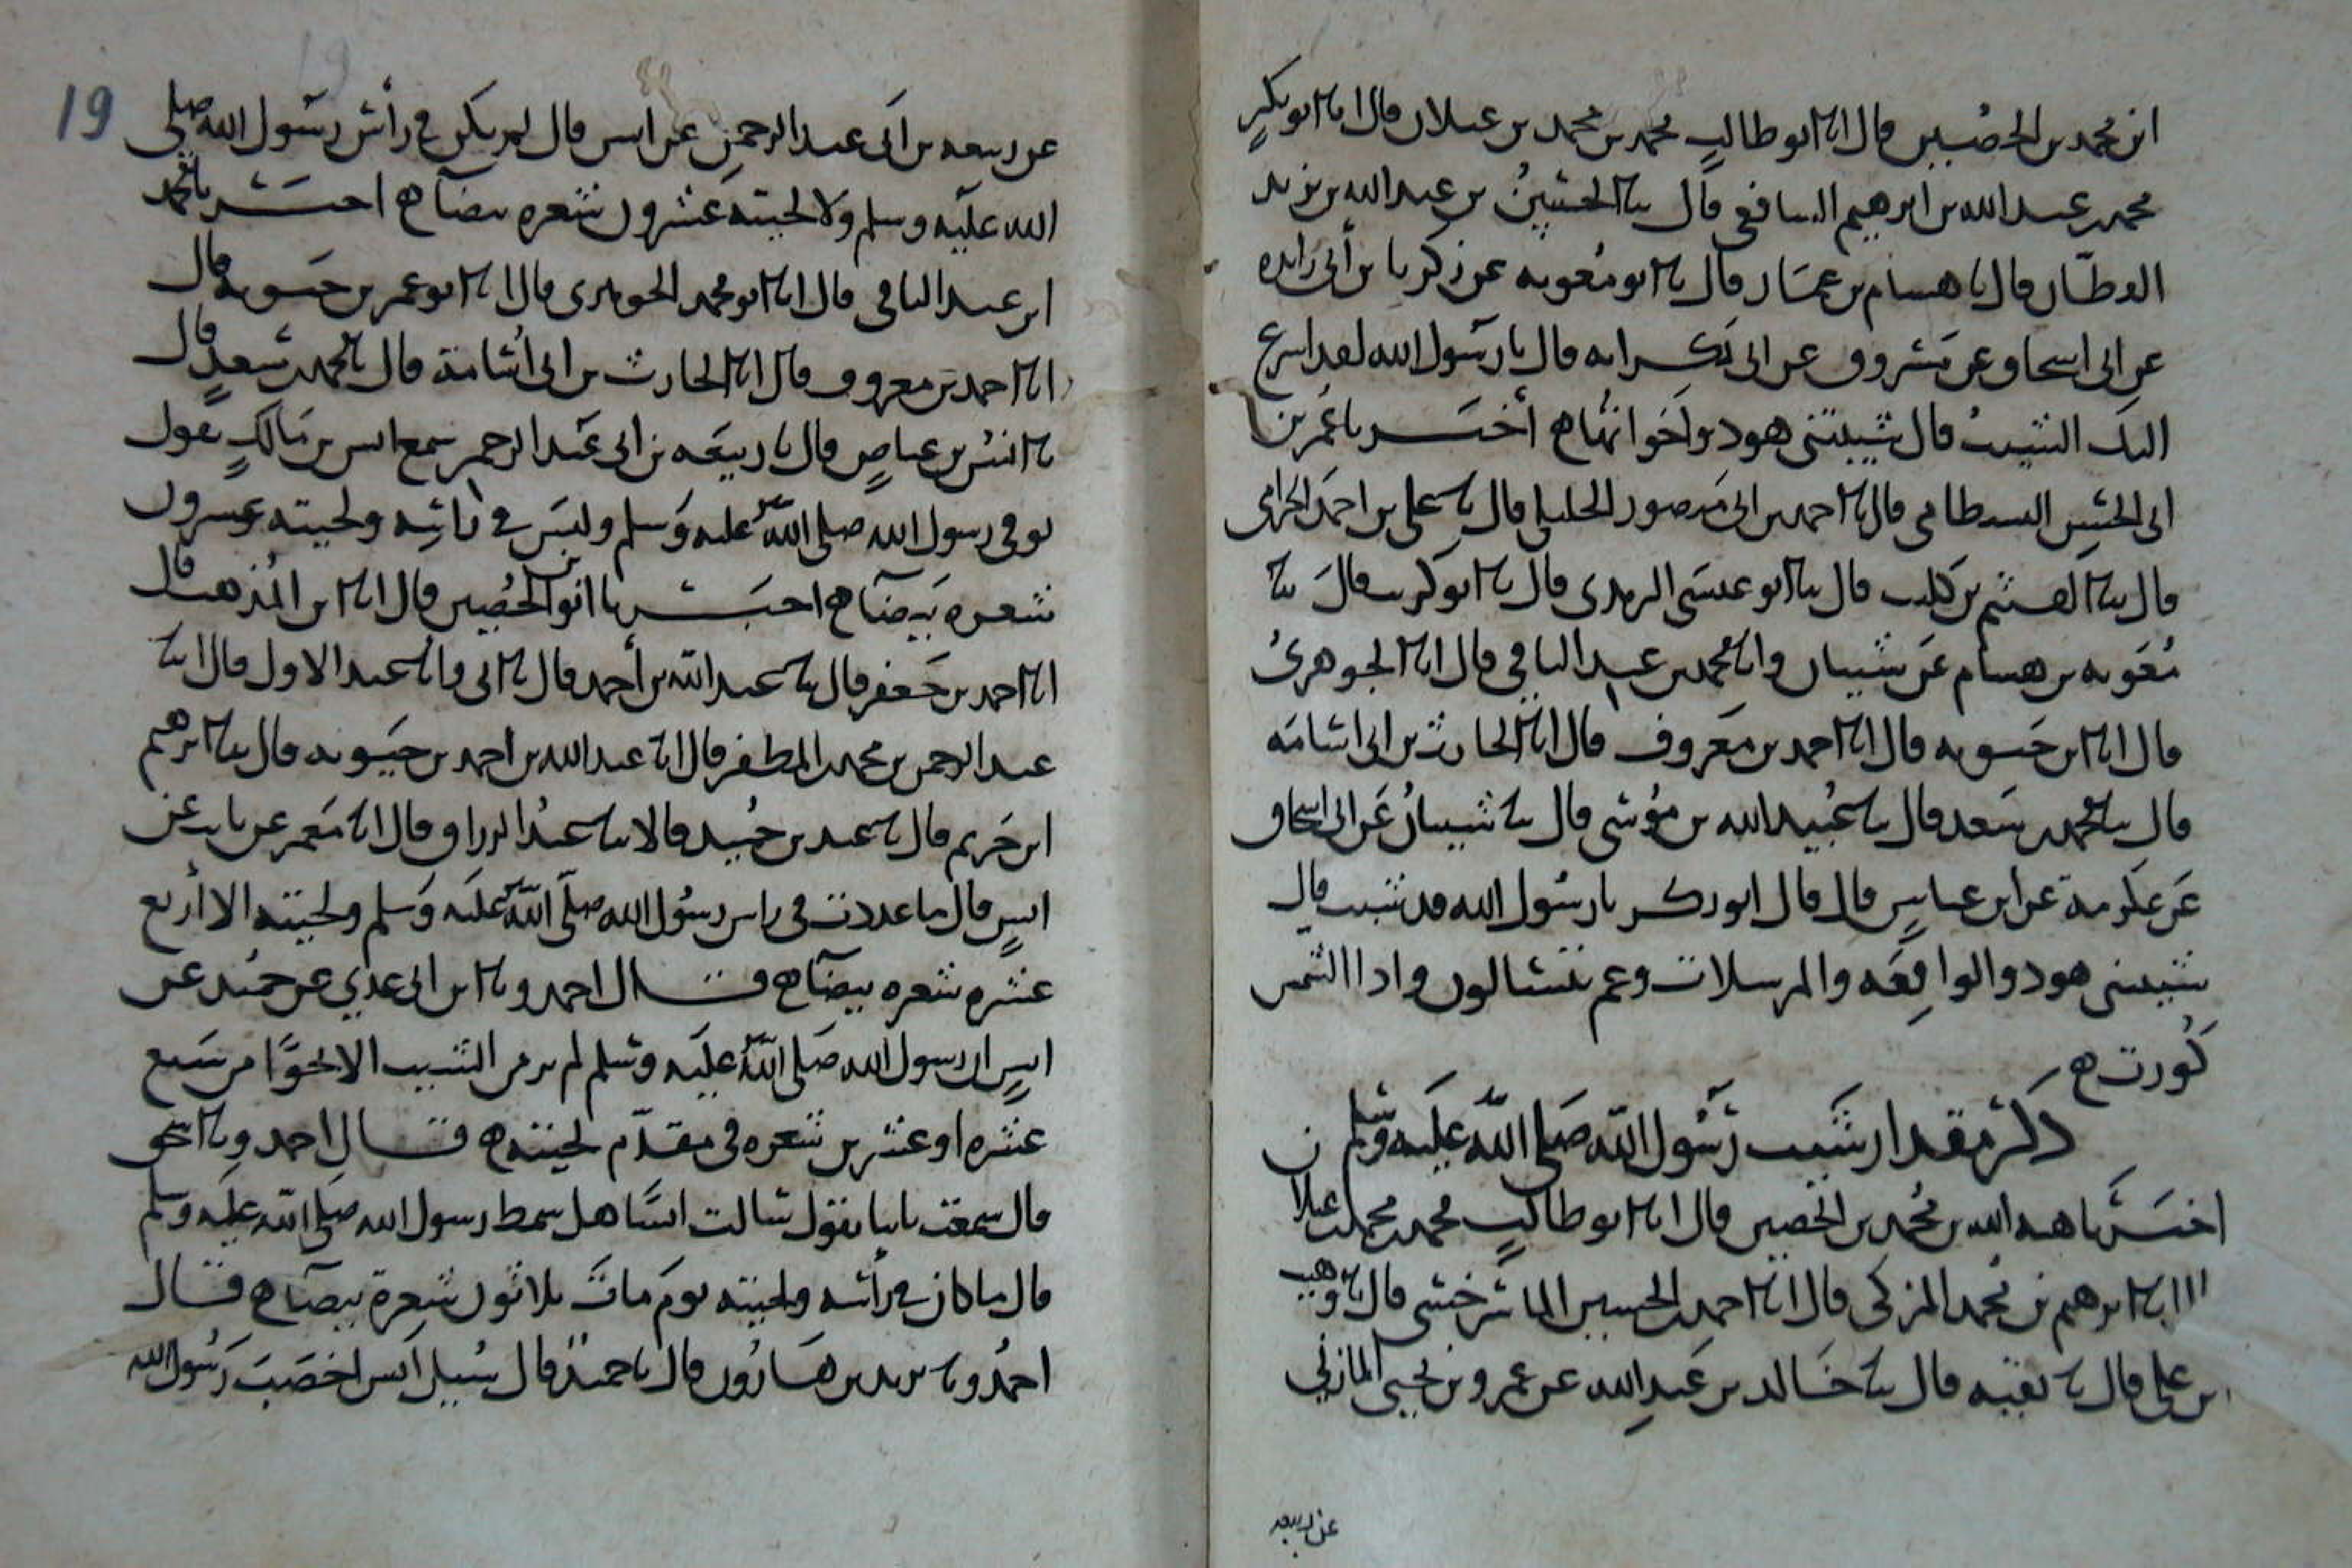 ابن محمد بن الحصين قال انا ابو طالب محمد بن محمد بن غيلان قال انا ابو بكر
محمد بن عبد الله بن ابرهيم الشافعي قال ثنا الحسين بن عبد الله بن يزيد
القطان قال نا هشام بن عمار قال نا ابو معوية عن زكريا بن أبي زايده
عن ابي اسحاق عن مسروق عن ابي بكر انه قال يا رسول الله لقد اسرع
اليك الشيب قال شيبتني هود واخواتها ه أخبرنا عمر بن
ابي الحسين البسطامي قال نا احمد بن ابي منصور الخليلي قال نا علي بن احمد الخزاعي
قال ثنا الهيثم بن كليب قال ثنا ابو عيسى الترمذي قال نا ابو كريب قال ثنا
معوية بن هشام عن شيبان وانا محمد بن عبد الباقي قال انا الجوهري
قال انا ابن حيويه قال انا احمد بن معروف قال انا الحارث بن ابي اسامة
قال ثنا محمد بن سعد قال ثنا عبيد الله بن موسى قال ثنا شيبان عن ابي اسحاق
عن عكرمة عن ابن عباس قال قال ابو بكر يا رسول الله قد شبت قال
شيبتني هود والواقعه والمرسلات وعم يتسالون واذا الشمس
كورت ه
ذكر مقدار شيب رسول الله صلى الله عليه وسلم
اخبرنا هبه الله بن محمد بن الحصين قال انا ابو طالب محمد بن محمد بن غيلان
انا ابرهيم بن محمد المزكي قال انا احمد بن الحسين الماسرخسي قال نا وهب
بن علي قال نا بقيه قال ثنا خالد بن عبد الله عن عمرو بن يحيى المازني
عن ربيعه
19
عن ربيعه بن ابي عبد الرحمن عن انس قال لم يكن في رأس رسول الله صلى
الله عليه وسلم ولا لحيته عشرون شعره بيضا ه اخبرنا محمد
ابن عبد الباقي قال انا ابو محمد الجوهري قال انا ابو عمر بن حيويه قال
انا احمد بن معروف قال انا الحارث بن ابي اسامة قال نا محمد بن سعد قال
نا انس بن عياض قال نا ربيعه بن ابي عبد الرحمن سمع انس بن مالك يقول
توفي رسول الله صلى الله عليه وسلم وليس في رأسه ولحيته عشرون
شعره بيضا ه اخبرنا ابن الحصين قال انا ابن المذهب قال
انا احمد بن جعفر قال ثنا عبد الله بن أحمد قال نا ابي وانا عبد الاول قال انا
عبد الرحمن بن محمد بن المظفر قال انا عبد الله بن احمد بن حيويه قال ثنا ابرهيم
ابن خريم قال نا عبد بن حميد قالا ثنا عبد الرزاق قال انا معمر عن ثابت عن
انس قال ما عددت في راس رسول الله صلى الله عليه وسلم ولحيته الا أربع
عشره شعره بيضا ه قال احمد ونا ابن ابي عدي عن حميد عن
انس ان رسول الله صلى الله عليه وسلم لم ير من الشيب الا نحوا من سبع
عشره او عشرين شعره في مقدم لحيته ه قال احمد ونا
قال سمعت ثابتا يقول سالت انسا هل شمط رسول الله صلى الله عليه وسلم
قال ما كان في رأسه ولحيته يوم مات ثلاثون شعرة بيضا ه قال
احمد ونا يزيد بن هارون قال نا حميد قال سيل انس اخضب رسول الله